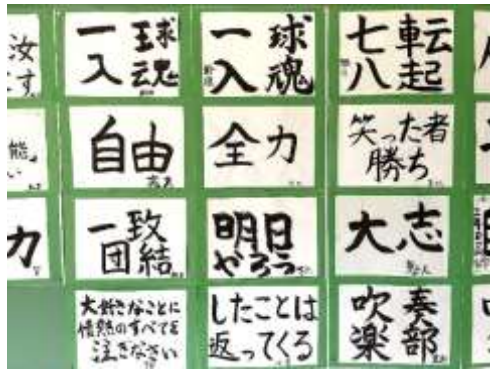 汝
す
一球
入魂
一球
入魂
七転
八起
能
い
自由
全力
笑った者
勝ち
力
一致
団結
明日
やろう
大志
大好きなことに
情熱のすべてを
注ぎなさい
したことは
返ってくる
吹奏
楽部